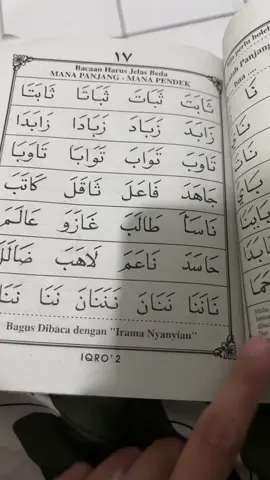 ١٧
Bacaan Harus Jelas Beda
MANA PANJANG - MANA PENDEK
ثَابَتَ ثَبَاتَ ثَبَاتَا ثَابَتَا
زَابَدَ زَبَادَ زَبَادَا زَابَدَا
تَاوَبَ تَوَابَ تَوَابَا تَاوَبَا
جَاهَدَ فَاعَلَ ثَاقَلَ كَاتَبَ
نَاسَأَ طَالَبَ غَازَوَ عَالَمَ
حَاسَدَ نَاعَمَ لَاهَبَ ضَالَلَ
نَاتَنَا نَنَانَ نَنَنَانَ نَنَا نَنَا
Bagus Dibaca dengan "Irama Nyanyian"
IQRO' 2